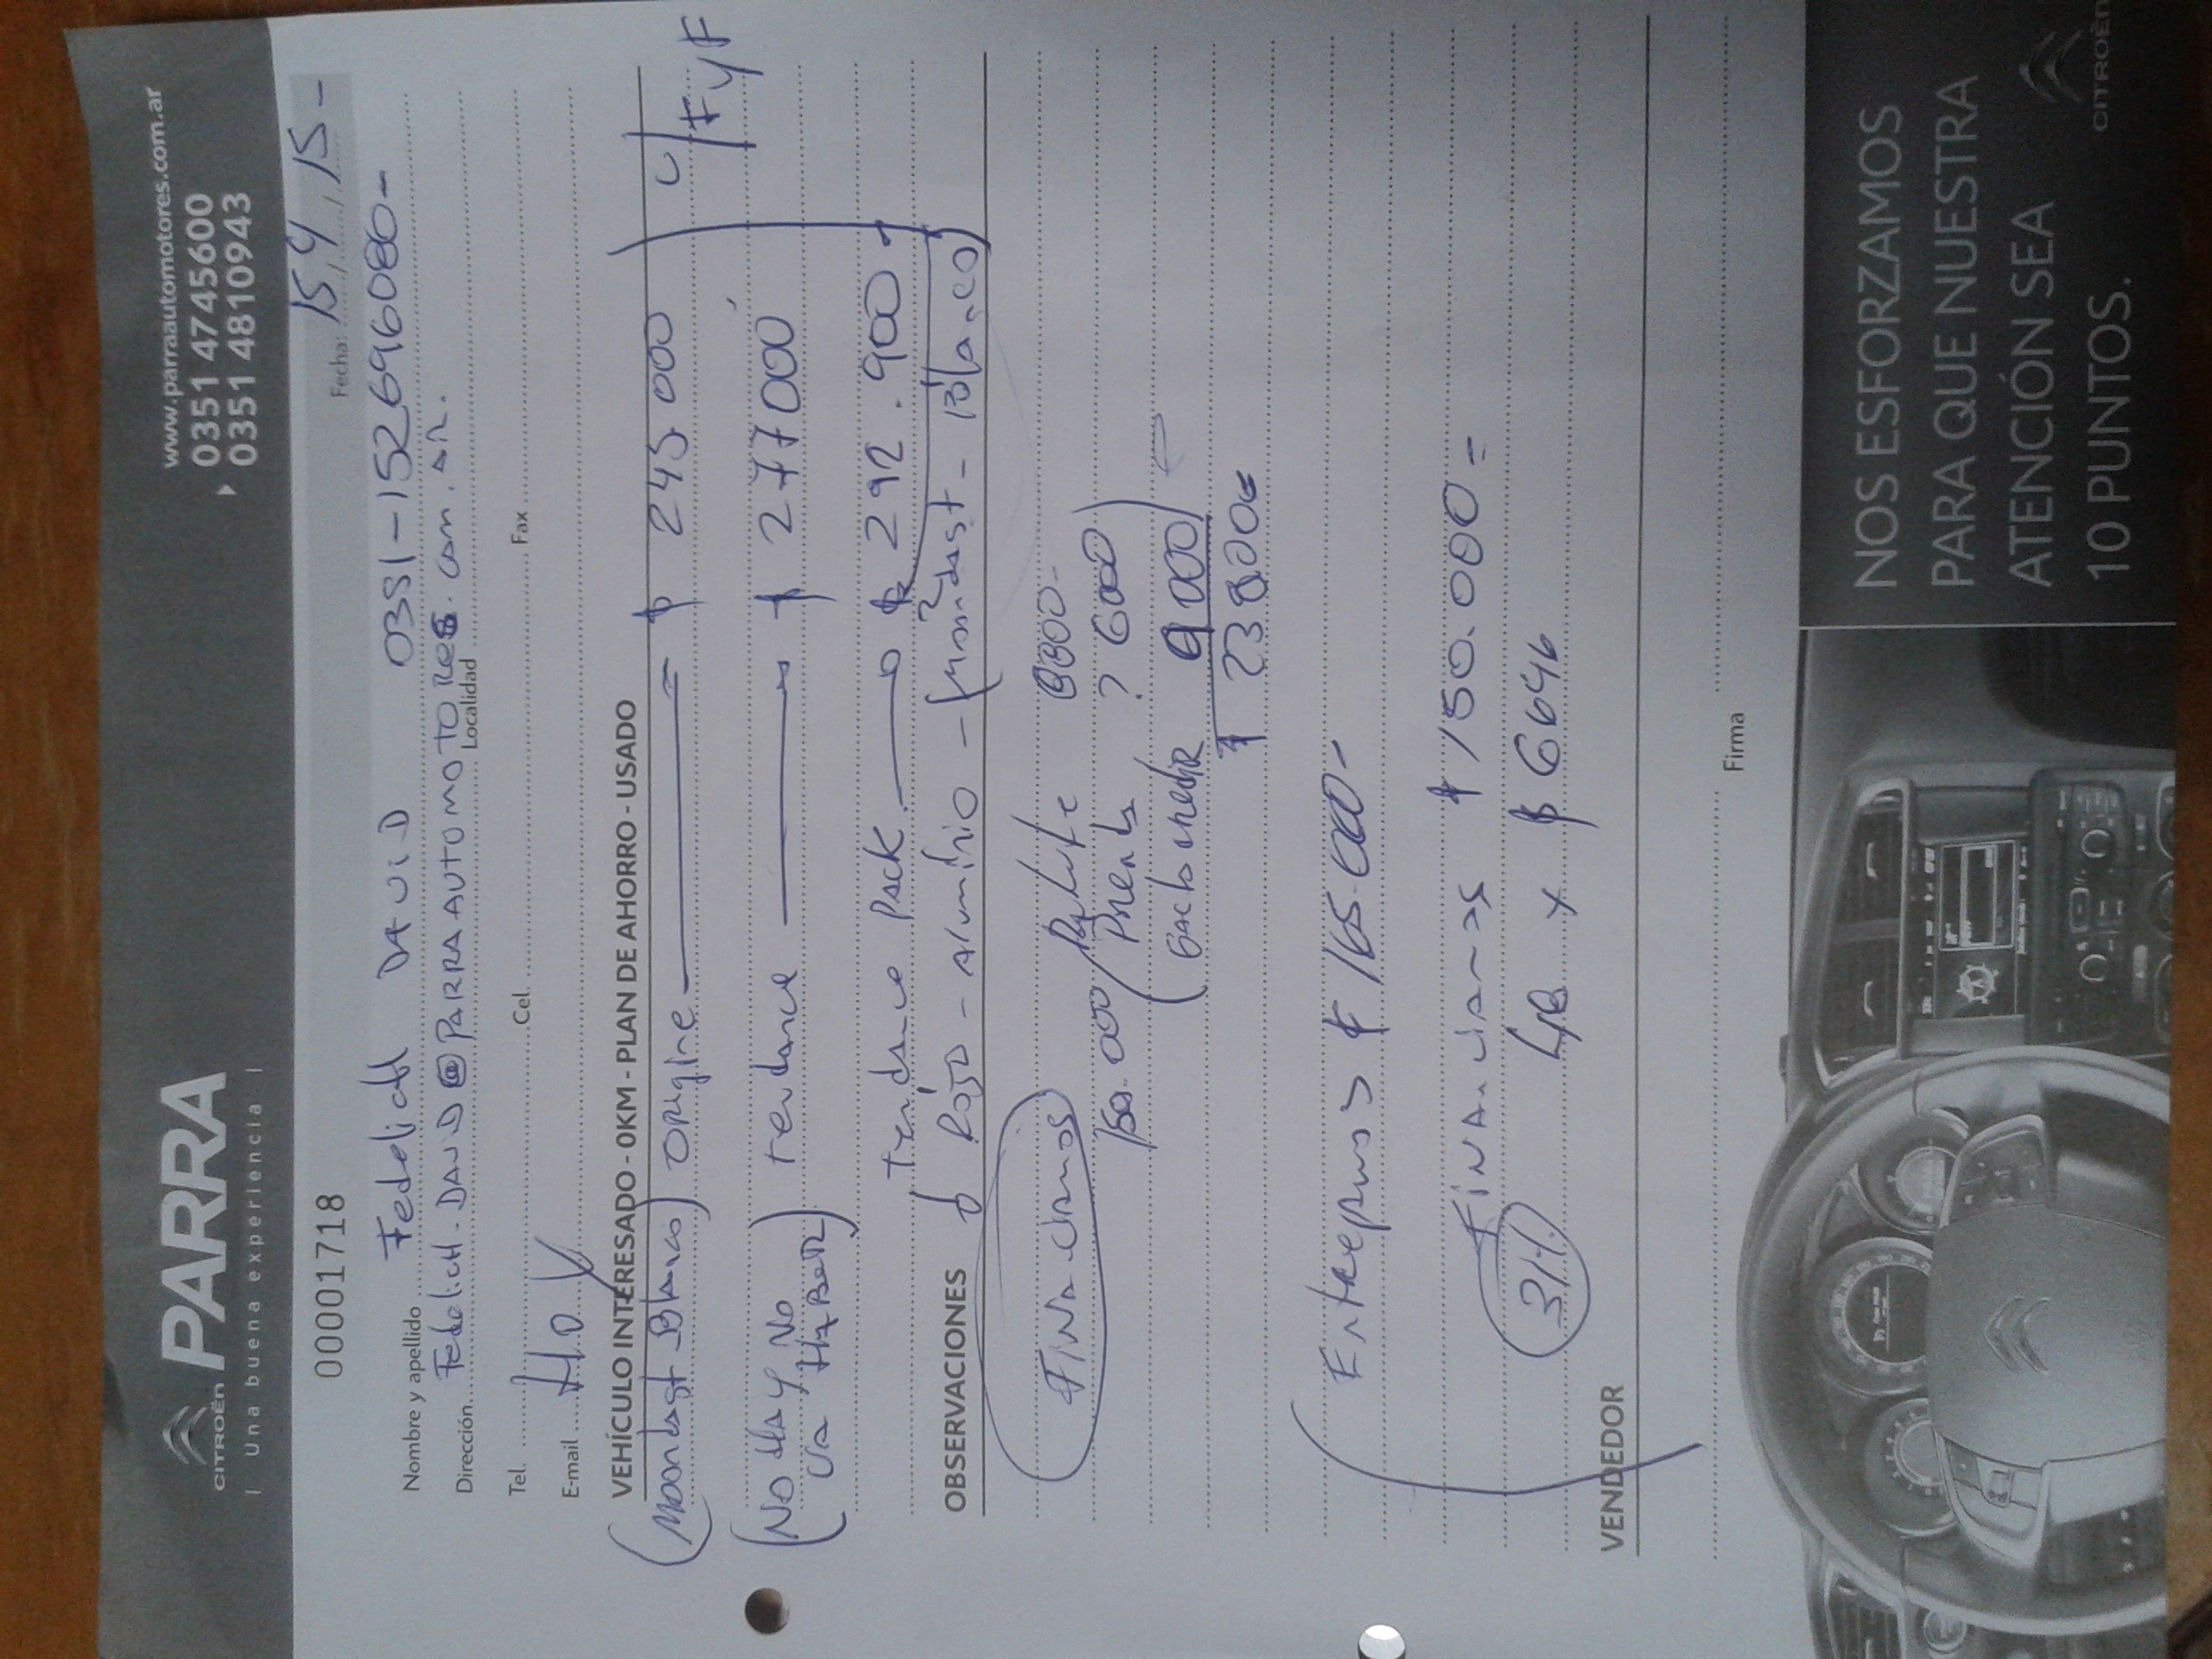 CITROËN PARRA
| Una buena experiencia |
www.parraautomotores.com.ar
0351 4745600
0351 4810943
00001718
Fecha: 15/4/15-
Nombre y apellido FedelicH DAViD 0351-152696080-
Dirección Fedelich.DAViD@PARRAAUTOMOTORES.com.AR. Localidad
Tel. Cel. Fax
E-mail HOY
VEHÍCULO INTERESADO - 0KM - PLAN DE AHORRO - USADO
(Moondast Blanco) Origine $ 245.000 c/FyF
(No HAy No VA HABER) tendance $ 277000
tendance PACK $ 292.900
OBSERVACIONES ROJO - Aluminio - (Moondast - Blanco)
FiNAnciamos
150.000 Patente 8800-
(Prenda ? 6000)
Gasto 9000
$ 23800=
Entregamos $ 165.000-
FiNAnciamos $ 150.000=
48 x $ 6646
VENDEDOR
Firma
NOS ESFORZAMOS
PARA QUE NUESTRA
ATENCIÓN SEA
10 PUNTOS.
CITROËN